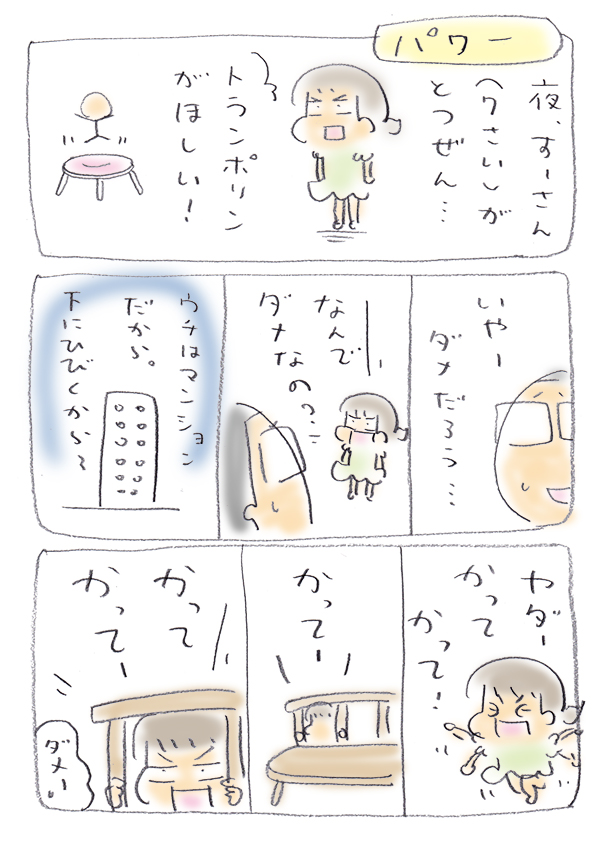 パワー
夜、すーさん
(7さい)が
とつぜん…
トランポリン
がほしい!
いやー
ダメだろう…
なんで
ダメなのっ??
ウチはマンション
だから。
下にひびくから〜
ヤダー
かって
かって!
かってー
かって
かってー
ダメ!!